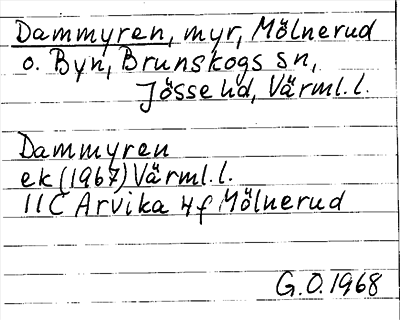 Dammyren, myr, Mölnerud
o. Byn, Brunskogs sn,
Jösse hd, Värml.l.
Dammyren
ek (1967) Värml.l.
11C Arvika 4f Mölnerud
G.O.1968